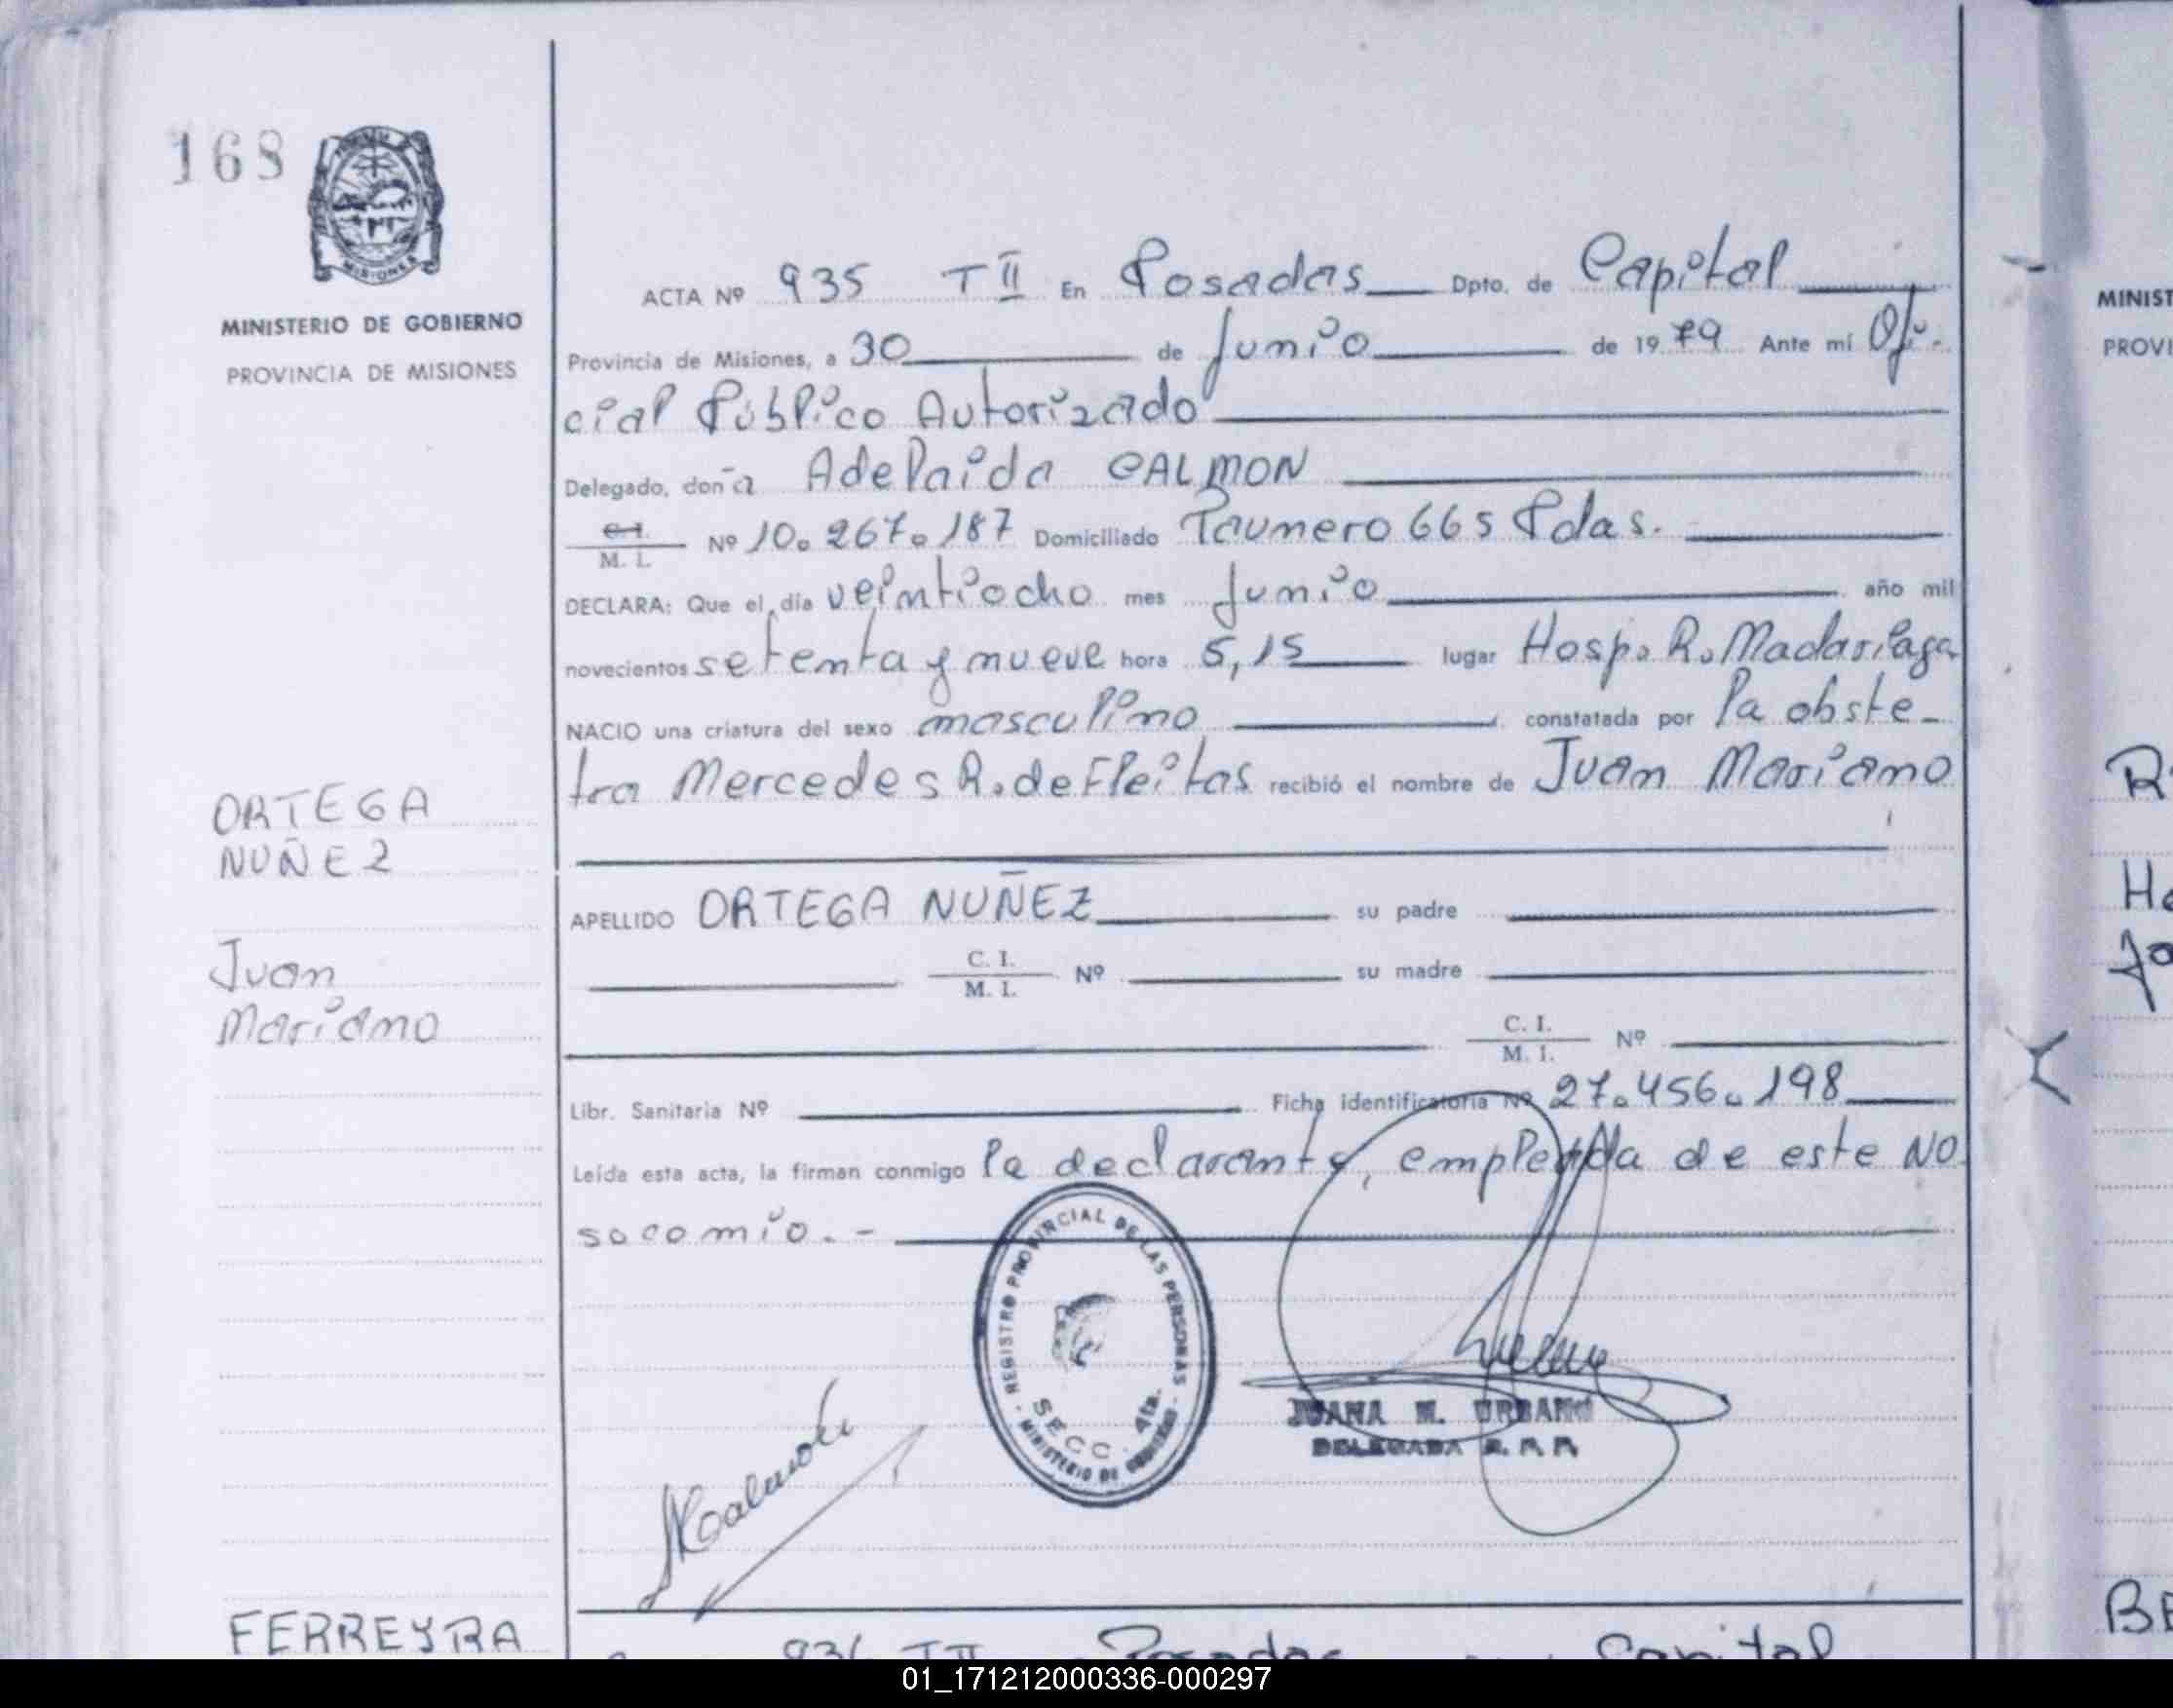 168
MISIONES
MINISTERIO DE GOBIERNO
PROVINCIA DE MISIONES
ACTA Nº 935 T II En Posadas Dpto. de Capital
Provincia de Misiones, a 30 de Junio de 1979 Ante mí Ofi-
cial Público Autorizado
Delegado, doña Adelaida CALMON
C.I.
M. I. Nº 10.267.187 Domiciliado Paunero 665 Pdas.
DECLARA: Que el día veintiocho mes Junio año mil
novecientos setenta y nueve hora 5,15 lugar Hosp. R. Madariaga
NACIO una criatura del sexo masculino constatada por la obste-
tra Mercedes R. de Fleitas recibió el nombre de Juan Mariano
ORTEGA
NUÑEZ
Juan
Mariano
APELLIDO ORTEGA NUÑEZ su padre
C. I.
M. I. Nº su madre
C. I.
M. I. Nº
Libr. Sanitaria Nº Ficha identificatoria Nº 27.456.198
Leída esta acta, la firman conmigo la declarante, empleada de este NO
socomio.-
REGISTRO PROVINCIAL DE LAS PERSONAS
SECC. 4ta.
MINISTERIO DE GOBIERNO
JUANA M. URBANO
DELEGADA R. P. P.
ACalmon
FERREYRA
936 T II Posadas Capital
MINIST
PROVI
R
Ho
Jo
BE
01_171212000336-000297